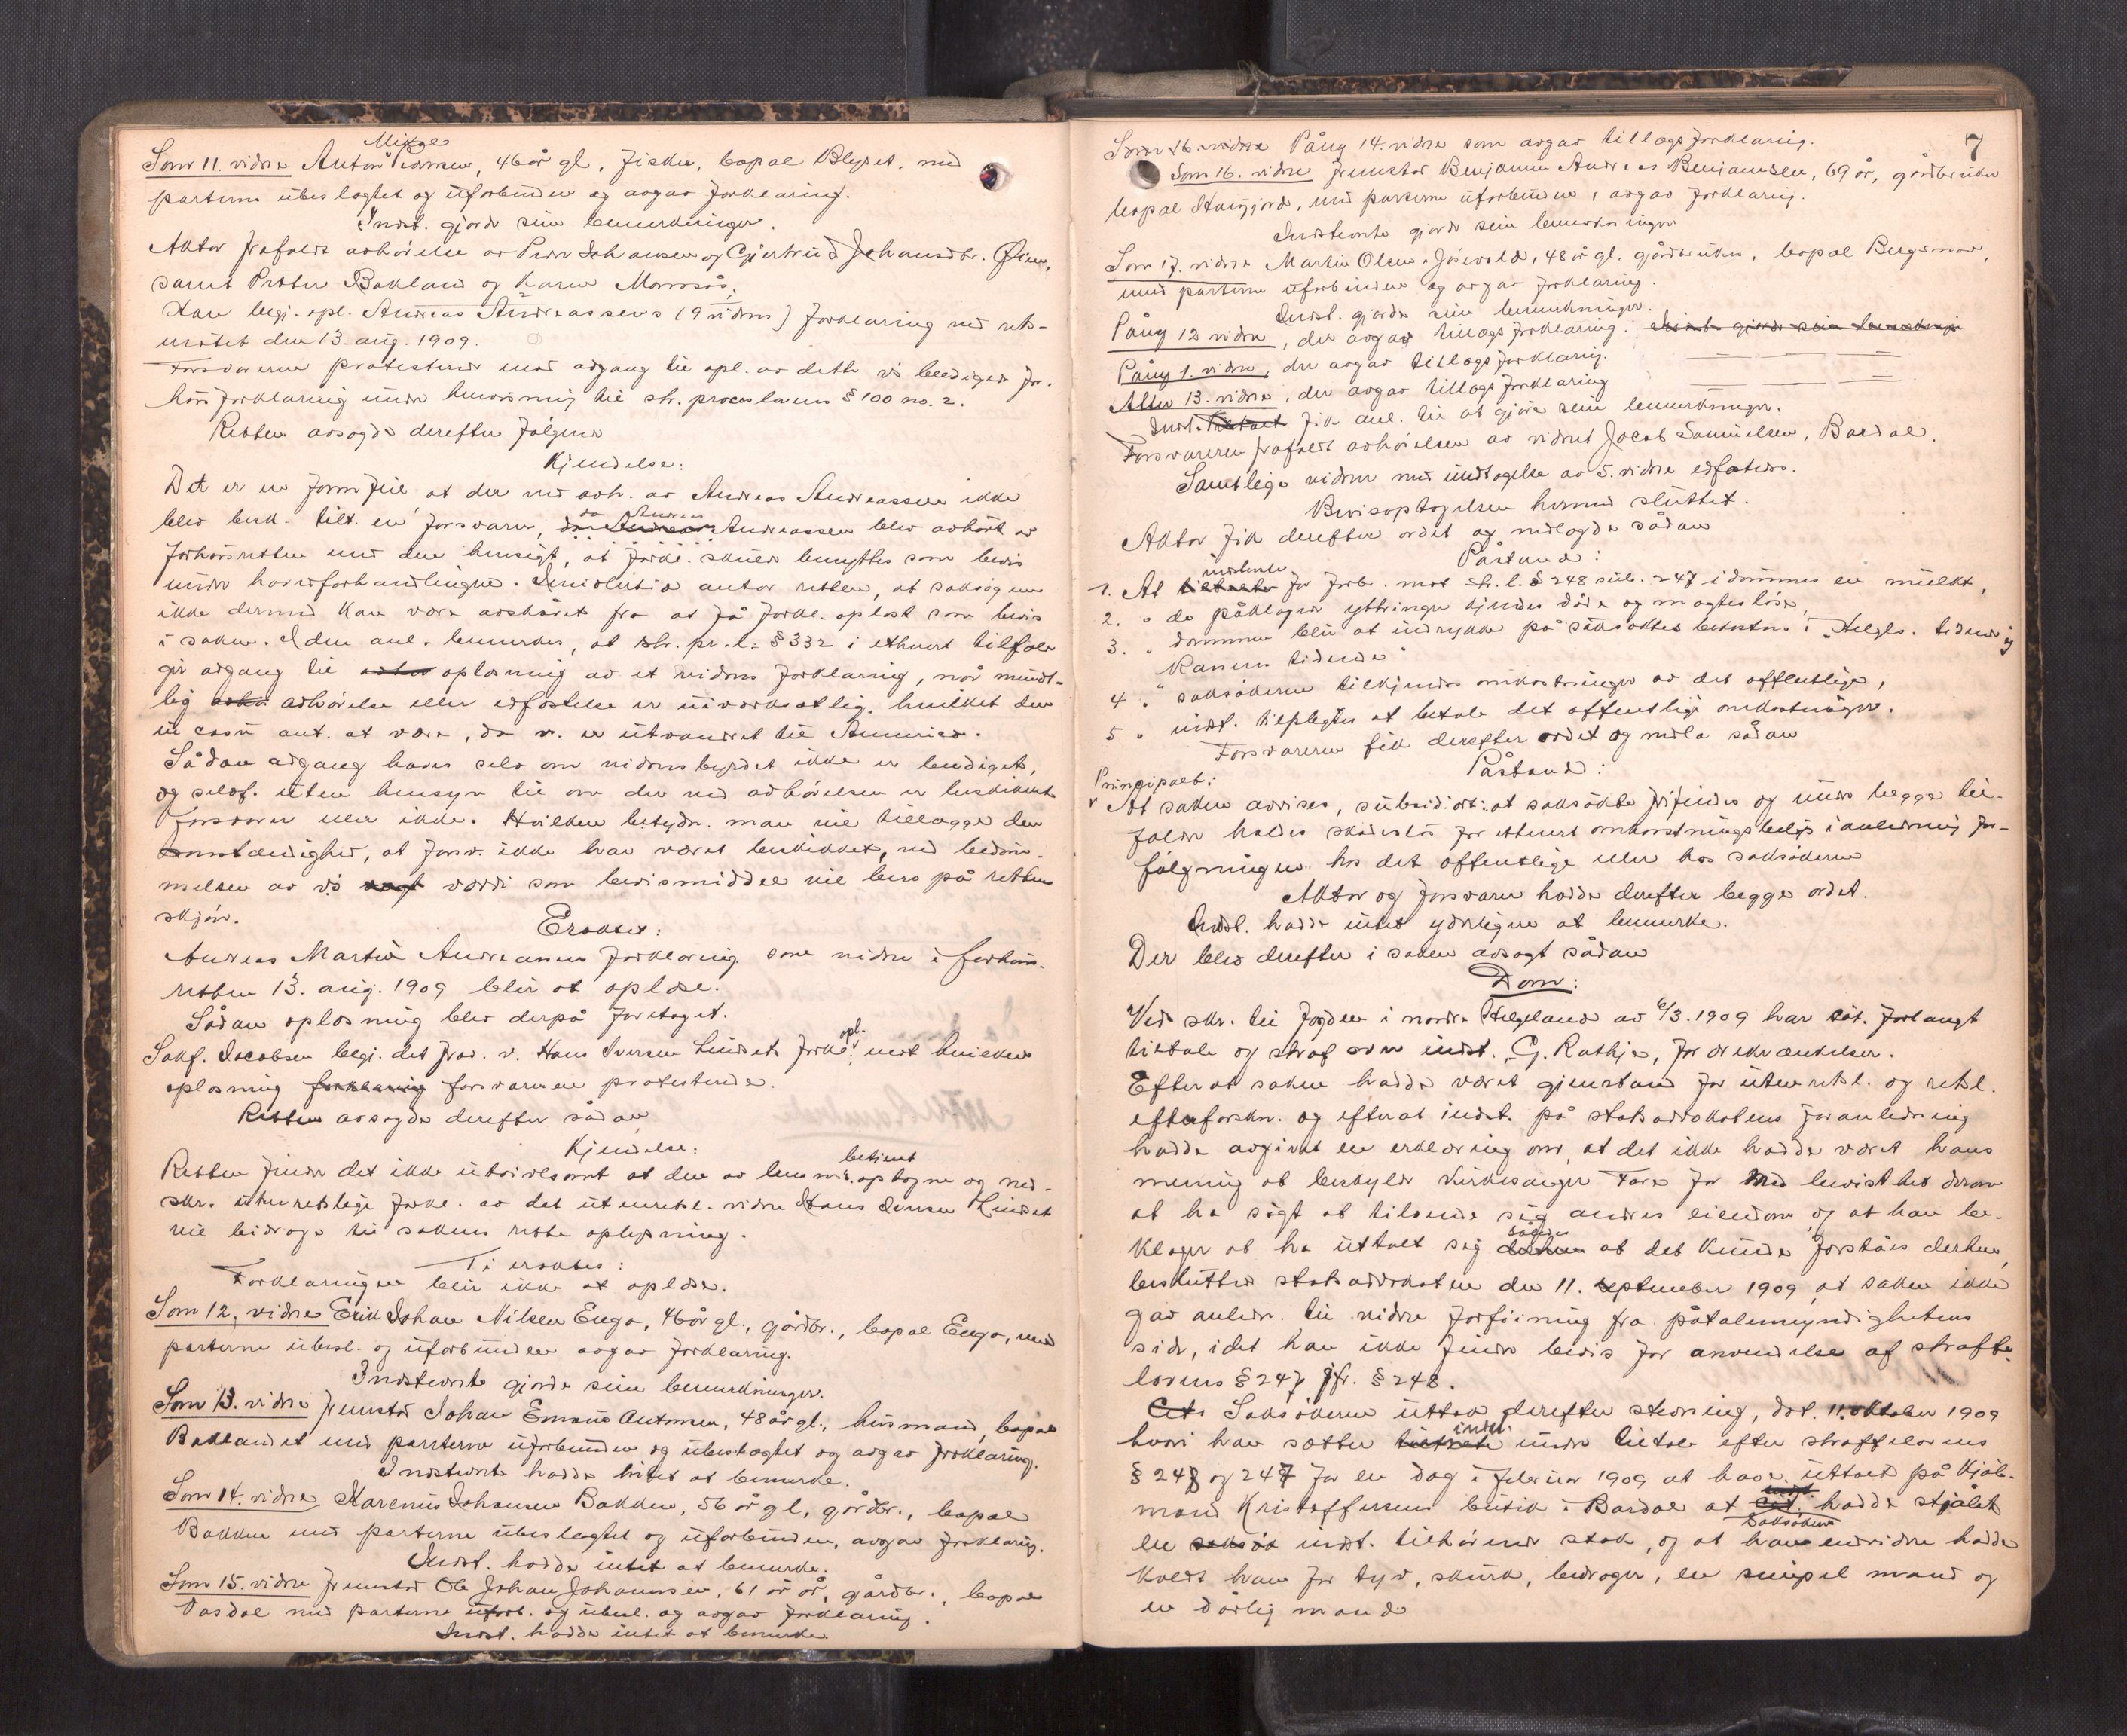 Mikal
Som 11. vidne Anton Pedersen, 46 år gl, fisker, bopæl Blegset, med
parterne ubeslægtet og uforbunden og avgav forklaring.
Indst. gjorde sine bemerkninger.
Aktor frafaldt avhørelse av Peder Johansen og Gjertrud Johansdtr. Øien,
samt Petter Bakland og Karen Monsås.
Han begj. opl. Andreas Andreassens (9 vidnes) forklaring ved ret-
møtet den 13. aug. 1909.
Forsvareren protesterede mod adgang til opl. av dette v's beedigede for-
hørsforklaring under henvisning til str. proceslovens § 100 no. 2.
Retten avsogde derefter følgende
Kjendelse:
Det er en formfeil at der ved avh. av Andreas Andreassen ikke
da Andreas
blev besk. tilt. en forsvarer, da Andreas Andreassen blev avhørt av
forhørsretten med den hensigt, at forkl. skulde benyttes som bevis
under hovedforhandlingen. Imidlertid antar retten, at saksøgeren
ikke dermed kan være avskåret fra at få forkl. oplæst som bevis
i saken. I den anl. bemerkes, at str. pr. l. § 332 i ethvert tilfælde
gir adgang til avhør oplæsning av et vidnes forklaring, når mundt-
lig avhør avhørelse eller edfæstelse er uiverksætlig, hvilket den
in casu ant. at være, da v. er utvandret til Amerika.
Sådan adgang haves selv om vidnesbyrdet ikke er beediget,
og selvf. uten hensyn til om der ved avhørelsen er beskikket
forsvarer eller ikke. Hvilken betydn. man vil tillægge den
omstændighed, at forsv. ikke har været beskikket, ved bedøm-
melsen av v's vægt værdi som bevismiddel vil bero på rettens
skjøn.
Eragtes:
Andreas Martin Andreassens forklaring som vidne i forhørs-
retten 13. aug. 1909 blir at oplæse.
Sådan oplæsning blev derpå foretaget.
opl.
Sakf. Jacobsen begj. det frav. v. Hans Iversen Lindsets forkl. mot hvilken
oplæsning forklaring forsvareren protesterede.
Retten avsogde derefter sådan
Kjendelse:
betjent
Retten finder det ikke utvivlsomt at den av lensm. optagne og ned-
skr. utenretslige forkl. av det utenretsl. vidne Hans Iversen Lindset
vil bidrage til sakens rette oplysning.
Ti eragtes:
Forklaringen blir ikke at oplæse.
Som 12. vidne Erik Johan Nilsen Enga, 46 år gl., gårdbr., bopæl Enga, med
parterne ubesl. og uforbunden avgav forklaring.
Indstevnte gjorde sine bemerkninger.
Som 13. vidne fremstod Johan Emanuel Antonsen, 48 år gl., husmand, bopæl
Baklandet med parterne uforbunden og ubeslægtet og avgav forklaring.
Indstevnte hadde intet at bemerke.
Som 14. vidne, Karenius Johansen Bakken, 56 år gl, gårdbr., bopæl
Bakken med parterne ubeslægtet og uforbunden, avgav forklaring.
Indst. hadde intet at bemerke.
Som 15. vidne fremstod Ole Johan Johannesen, 61 år år, gårdbr., bopæl
Vasdal med parterne uforb. og ubesl. og avgav forklaring.
Indst. hadde intet at bemerke
7
Som 16. vidne Påny 14. vidne som avgav tillægsforklaring.
Som 16. vidne fremstod Benjamin Andreas Benjaminsen, 69 år, gårdbruker
bopæl, med parterne uforbunden, avgav forklaring.
Indstevnte gjorde sine bemerkninger
Som 17. vidne Martin Olsen, 48 år gl. gårdbruker, bopæl,
med parterne uforbunden og avgav forklaring.
Indst. gjorde sine bemerkninger.
Påny 12 vidne, der avgav tillægsforklaring. Indst. gjorde sine bemerkninger
Påny 1. vidne, der avgav tillægsforklaring.
Atter 13. vidne, der avgav tillægsforklaring
Indst. fik anl. til at gjøre sine bemerkninger.
Forsvareren frafaldt avhørelsen av vidnet Jacob Samuelsen, Bardal.
Samtlige vidner med undtagelse av 5. vidne edfæstedes.
Bevisoptagelsen hermed sluttet.
Aktor fik derefter ordet og nedlagde sådan
Påstand:
indstevnte
1. At tiltalte for forbr. mot str. l. § 248 sub. 247 idømmes en mulkt,
2. " de påklagede yttringer kjendes døde og magtesløse,
3. " dommen blir at indrykke på saksøktes bekostning i "Helgls. tidende" og
"Ranens tidende"
4. " saksøkeren tilkjendes omkostninger av det offentlige,
5. " indst. tilpligtes at betale det offentlige omkostninger.
Forsvareren fik derefter ordet og nedla sådan
Påstand:
Principalt:
At saken avvises, subsidiært: at saksøkte frifindes og under begge til-
fælde holdes skadesløs for ethvert omkostningsbeløp i anledning for-
følgningen hos det offentlige eller hos saksøkeren
Aktor og forsvarer hadde derefter begge ordet.
Indst. hadde intet yderligere at bemerke.
Der blev derefter i saken avsagt sådan
Dom:
Ved skr. til fogden i nordre Helgeland av 6/3. 1909 har cit. forlangt
tiltale og straf over indst. G. Rathje, for ærekrænkelser.
Efter at saken hadde været gjenstand for utenretsl. og retsl.
efterforskn. og efterat indst. på statsadvokatens foranledning
hadde avgivet en erklæring om, at det ikke hadde været hans
mening at beskylde kirkesanger Fore for med bevisthet derom
at ha søgt at tilvende sig andres eiendom, og at han be-
således
klager at ha uttalt sig at det kunde forståes derhen,
besluttede statsadvokaten den 11. september 1909, at saken ikke
gav anledn. til videre forføining fra påtalemyndighetens
side, idet han ikke finder bevis for anvendelse af straffe-
lovens § 247 jfr. § 248.
Cit. Saksøkeren uttok derefter stevning, dat. 11. oktober 1909
indst.
hvori han sætter tiltalte under tiltale efter straffelovens
§ 248 og 247 for en dag i februar 1909 at have uttalt på kjøb-
mand Kristoffersens butik i Bardal at cit. hadde stjålet
saksøkeren
en indst. tilhørende stok, og at han endvidere hadde
kaldt ham for tyv, skurk, bedrager, en simpel mand og
en dårlig mand